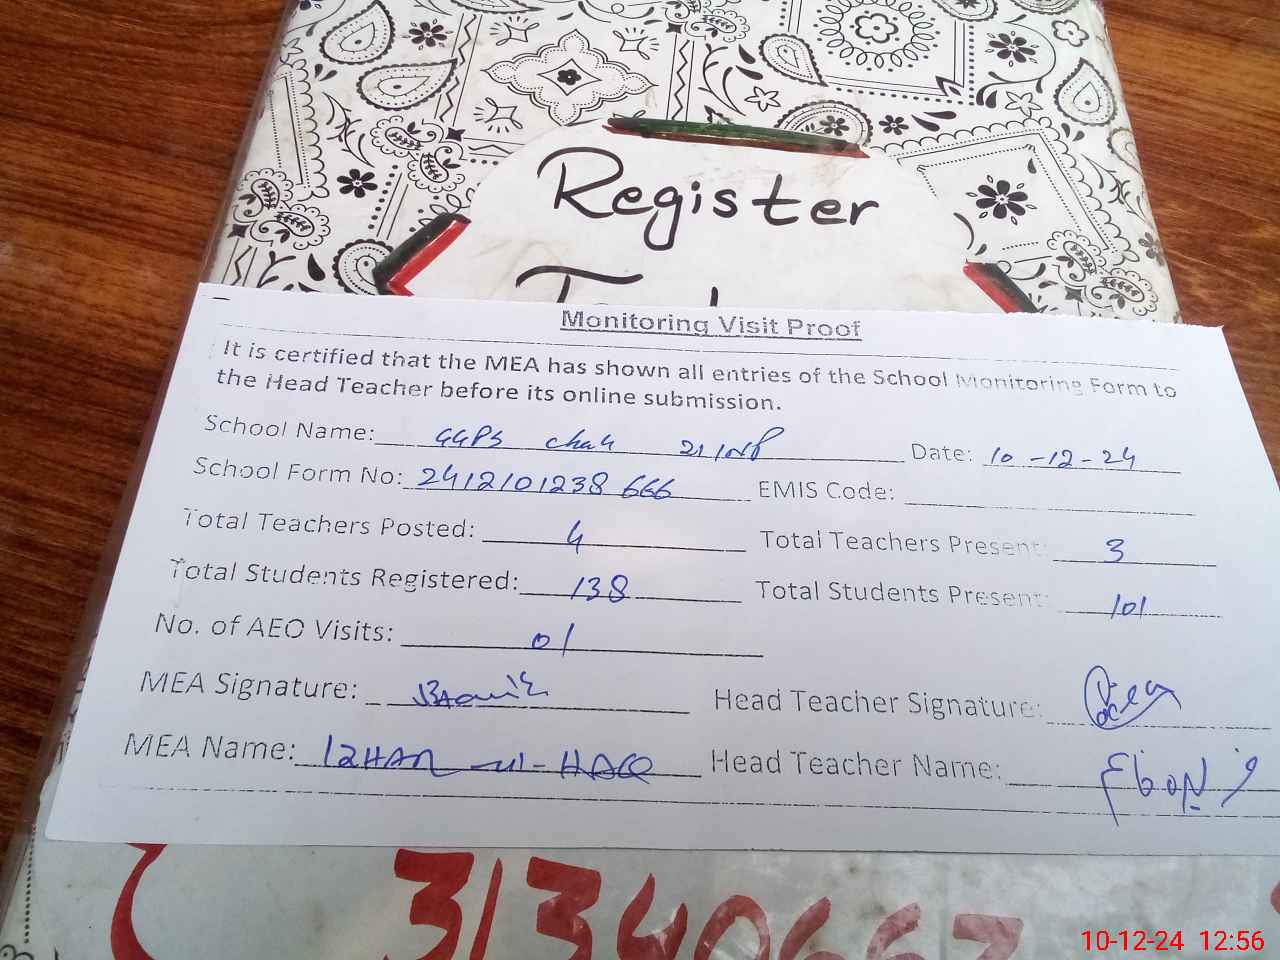 Register
Monitoring Visit Proof
It is certified that the MEA has shown all entries of the School Monitoring Form to
the Head Teacher before its online submission.
School Name: GGPS Chak 21/NP Date: 10-12-24
School Form No: 2412101238 666 EMIS Code:
Total Teachers Posted: 4 Total Teachers Present: 3
Total Students Registered: 138 Total Students Present: 101
No. of AEO Visits: 01
MEA Signature: Head Teacher Signature:
MEA Name: IZHAR-ul-HAQ Head Teacher Name:
3134066
10-12-24 12:56